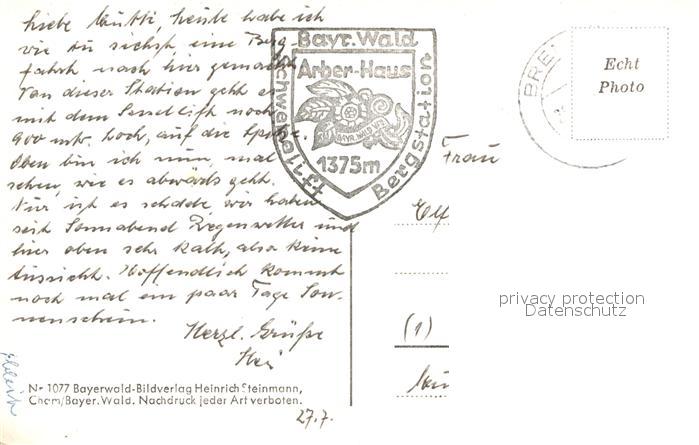 Liebe Mutti, heute habe ich
wie du siehst, eine Berg-
fahrt nach hier gemacht.
Von dieser Station geht es
mit dem Sessellift noch
900 mtr. hoch, auf die Spitze.
Oben bin ich nun, mal
sehen, wie es abwärts geht.
Nur ist es schade, wir haben
seit Sonnabend Regenwetter und
hier oben sehr kalt, also keine
Aussicht. Hoffendlich kommt
noch mal ein paar Tage Son-
nenschein.
Herzl. Grüße
Bayr. Wald
Arber-Haus
BAYR. WALD
1375m
Bergstation
BRE
Echt
Photo
Frau
(1)
privacy protection
Datenschutz
Nr 1077 Bayerwald-Bildverlag Heinrich Steinmann,
Cham/Bayer. Wald. Nachdruck jeder Art verboten.
27.7.